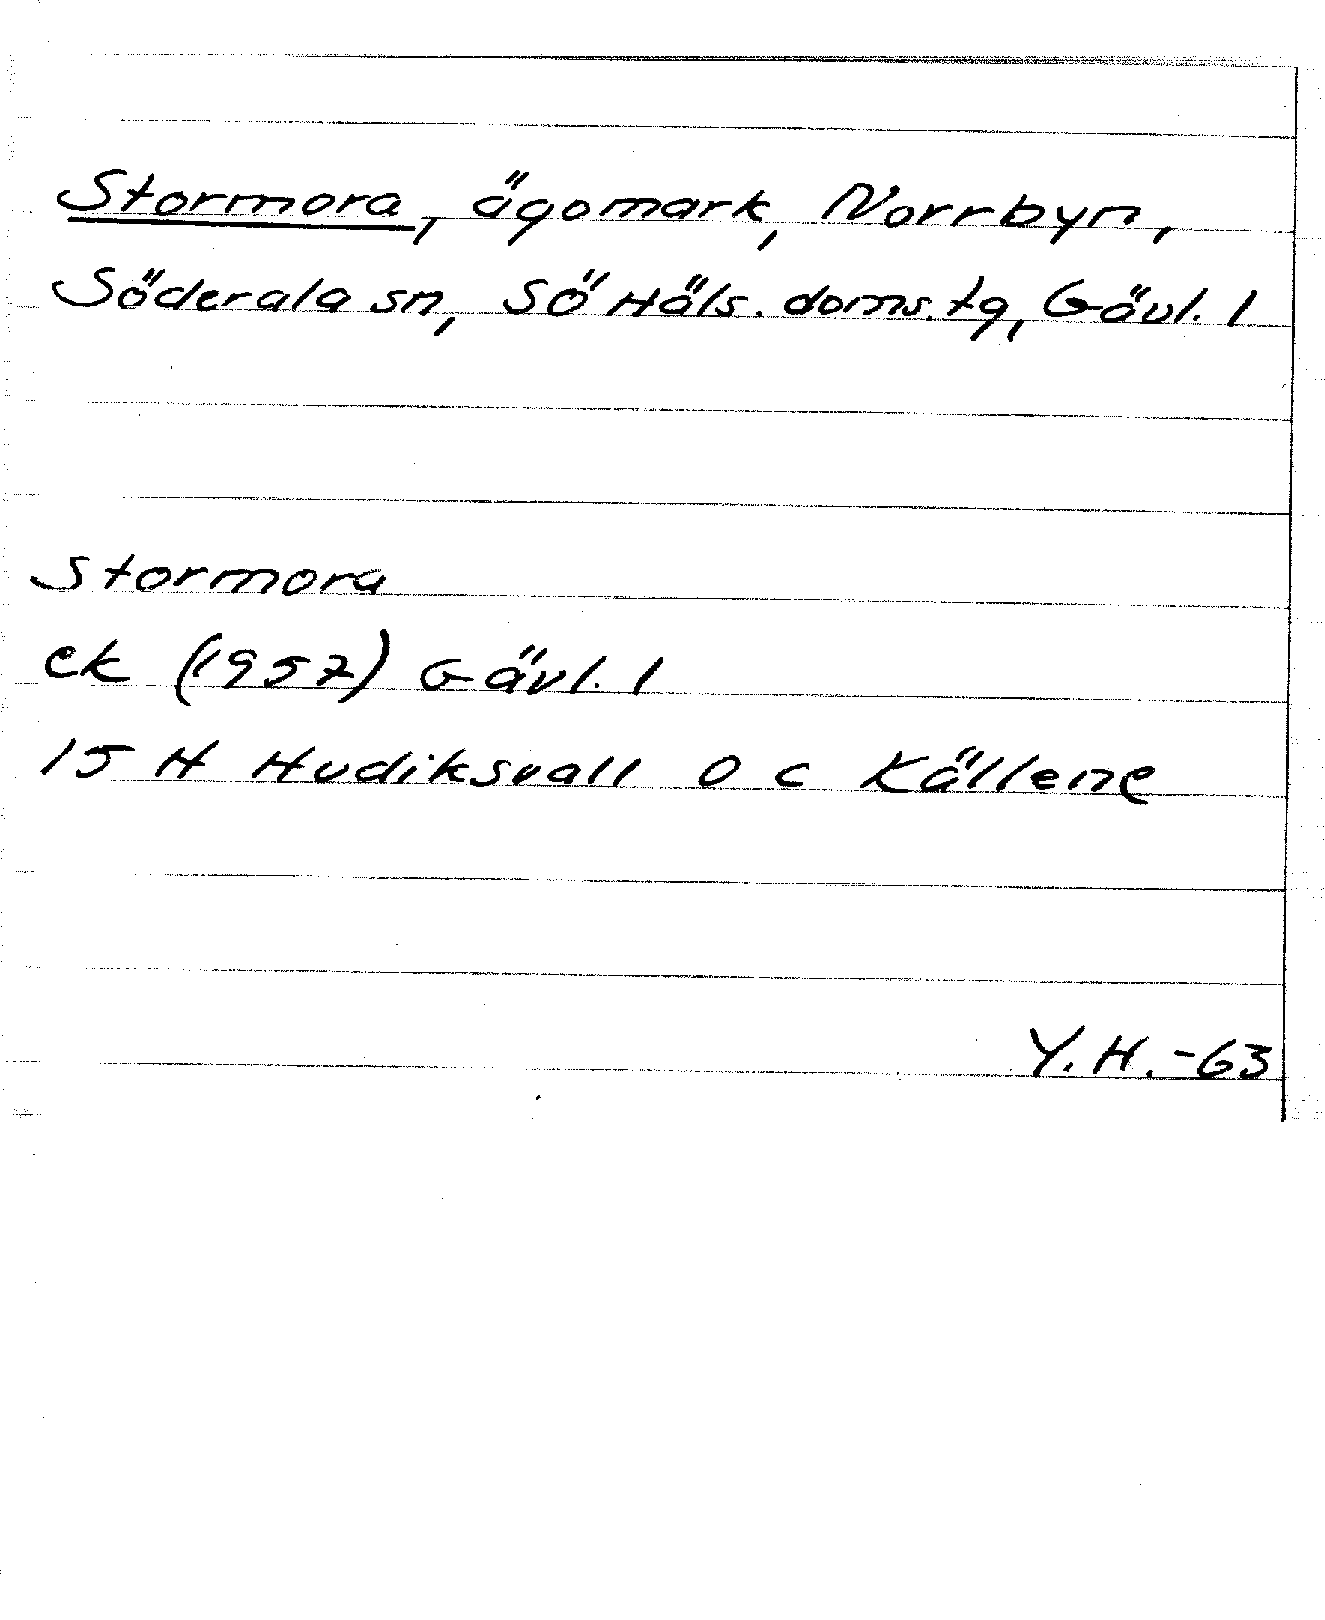 Stormora, ägomark, Norrbyn,
Söderala sn, Sö Häls. doms. tg, Gävl. l
Stormora
ek (1957) Gävl. l
15 H Hudiksvall O c Källene
Y.H.-63